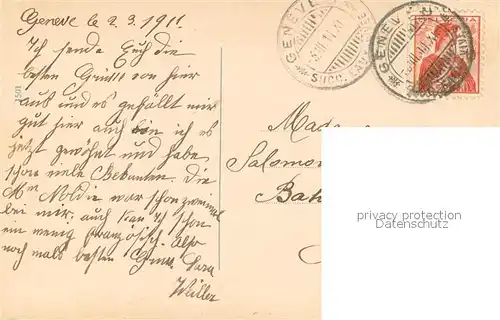 Geneve le 2.3.1911.
Ich sende Euch die
besten Grüsse von hier
aus und es gefällt mir
gut hier auch bin ich es
jetzt gewöhnt und habe
schon viele Bekanten. Die
Mm Noldie war schon zweimal
bei mir. auch kan ich schon
ein wenig französisch. Also
noch mals besten Gruss Sara
Müller
1501
GENEVE
SUCC.
GENEVE
HELVETIA
Madame
Salomon
Bah
privacy protection
Datenschutz